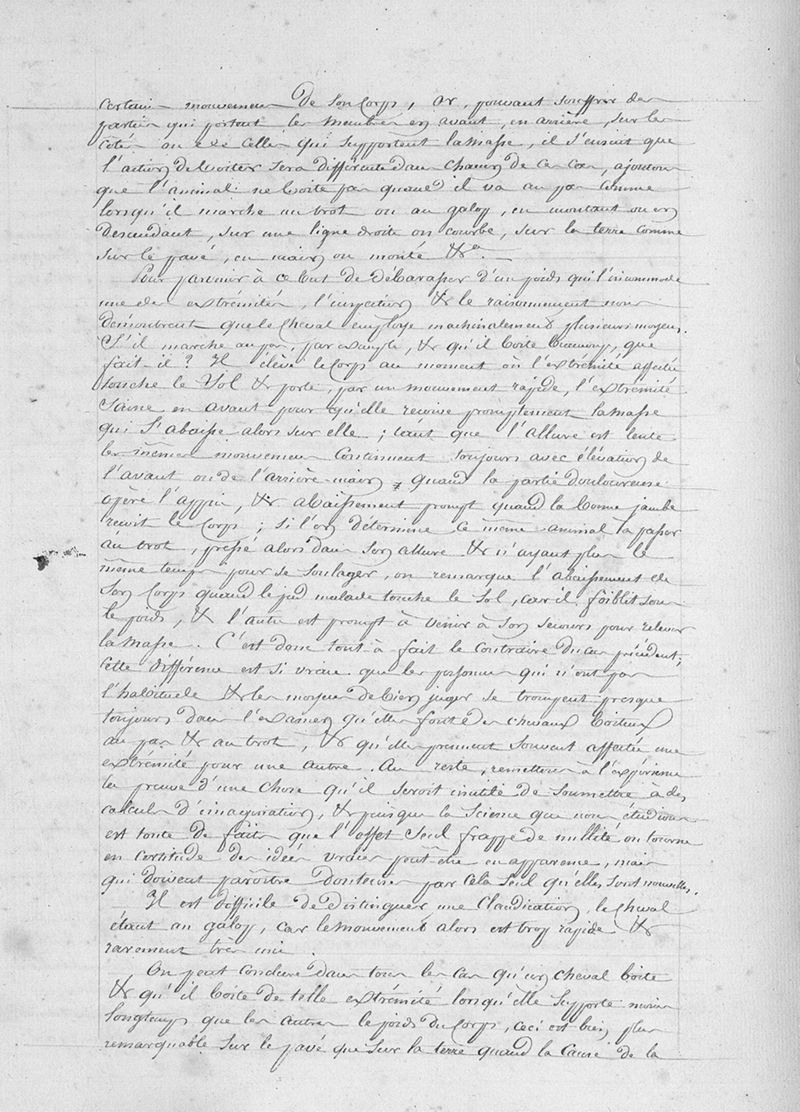 certain mouvement de son Corps, or, pouvant souffrir des
parties qui portent les membres en avant, en arrière, sur les
côtés ou de celles qui supportent la masse, il s'ensuit que
l'action de boiter sera différente dans chacun de ces cas, ajoutons
que l'animal ne boite pas quand il va au pas comme
lorsqu'il marche au trot ou au galop, en montant ou en
descendant, sur une ligne droite ou courbe, sur la terre comme
sur le pavé, en main ou monté &a.
Pour parvenir à ce but de débarasser d'un poids qui l'incommode
une des extrémités, l'inspection & le raisonnement nous
démontrent que le cheval employe machinalement plusieurs moyens.
S'il marche au pas, par exemple, & qu'il boite beaucoup, que
fait-il ? Il élève le Corps au moment où l'extrémité affectée
touche le Sol & porte, par un mouvement rapide, l'extrémité
Saine en avant pour qu'elle reçoive promptement la masse
qui S'abaisse alors sur elle ; tant que l'allure est lente
les mêmes mouvemens Continuent toujours avec élévation de
l'avant ou de l'arrière-main, quand la partie douloureuse
opère l'appui, & abaissement prompt quand la bonne jambe
reçoit le Corps ; si l'on détermine ce même animal à passer
au trot, pressé alors dans Son allure & n'ayant plus le
même temps pour se soulager, on remarque l'abaissement de
Son Corps quand le pied malade touche le Sol, car il foiblit sous
le poids, & l'autre est prompt à venir à Son secours pour relever
la masse. C'est donc tout à fait le Contraire du cas précédent ;
cette différence est si vraie que les personnes qui n'ont pas
l'habitude & les moyens de bien juger se trompent presque
toujours dans l'examen qu'elles font de chevaux boiteux
au pas & au trot, & qu'elles prennent souvent affectée une
extrémité pour une autre. Au reste, remettons à l'expérience
la preuve d'une chose qu'il seroit inutile de soumettre à des
calculs d'imagination, & puisque la Science que nous étudions
est toute de faits que l'effet Seul frappe de nullité ou tourne
en certitude des idées vraies peut être en apparence, mais
qui doivent paroître douteuses par cela seul qu'elles sont nouvelles.
Il est difficile de distinguer une Claudication, le cheval
étant au galop, car le mouvement alors est trop rapide &
rarement très uni.
On peut conclure dans tous les cas qu'un cheval boite
& qu'il boite de telle extrémité lorsqu'elle supporte moins
longtemps que les autres le poids du Corps, ceci est bien plus
remarquable sur le pavé que sur la terre quand la Cause de la